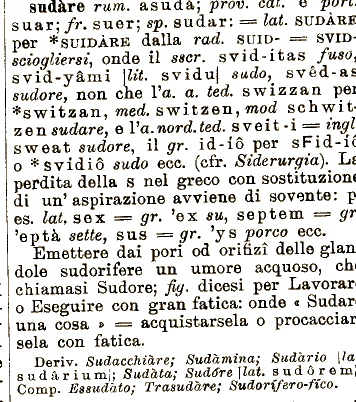 sudàre rum. asudá; prov. cat. e port.
suar; fr. suer; sp. sudar: = lat. SUDÀRE
per *SUIDÀRE dalla rad. SUID- = SVID-
sciogliersi, onde il sscr. svid-itas fuso,
svid-yâmi [lit. svidu] sudo, svêd-as
sudore, non che l'a. a. ted. swizzan per
*switzan, med. switzen, mod schwit-
zen sudare, e l'a. nord. ted. sveit-i = ingl.
sweat sudore, il gr. id-íô per sFid-íô
o *svidiô sudo ecc. (cfr. Siderurgia). La
perdita della s nel greco con sostituzione
di un' aspirazione avviene di sovente: p.
es. lat. sex = gr. 'ex su, septem = gr.
'eptà sette, sus = gr. 'ys porco ecc.
Emettere dai pori od orifizî delle glan-
dole sudorifere un umore acquoso, che
chiamasi Sudore; fig. dicesi per Lavorare
o Eseguire con gran fatica: onde « Sudare
una cosa » = acquistarsela o procacciar-
sela con fatica.
Deriv. Sudacchiàre; Sudàmina; Sudàrio [lat.
sudàrium]; Sudàta; Sudóre [lat. sudôrem];
Comp. Essudàto; Trasudàre; Sudorífero-fico.